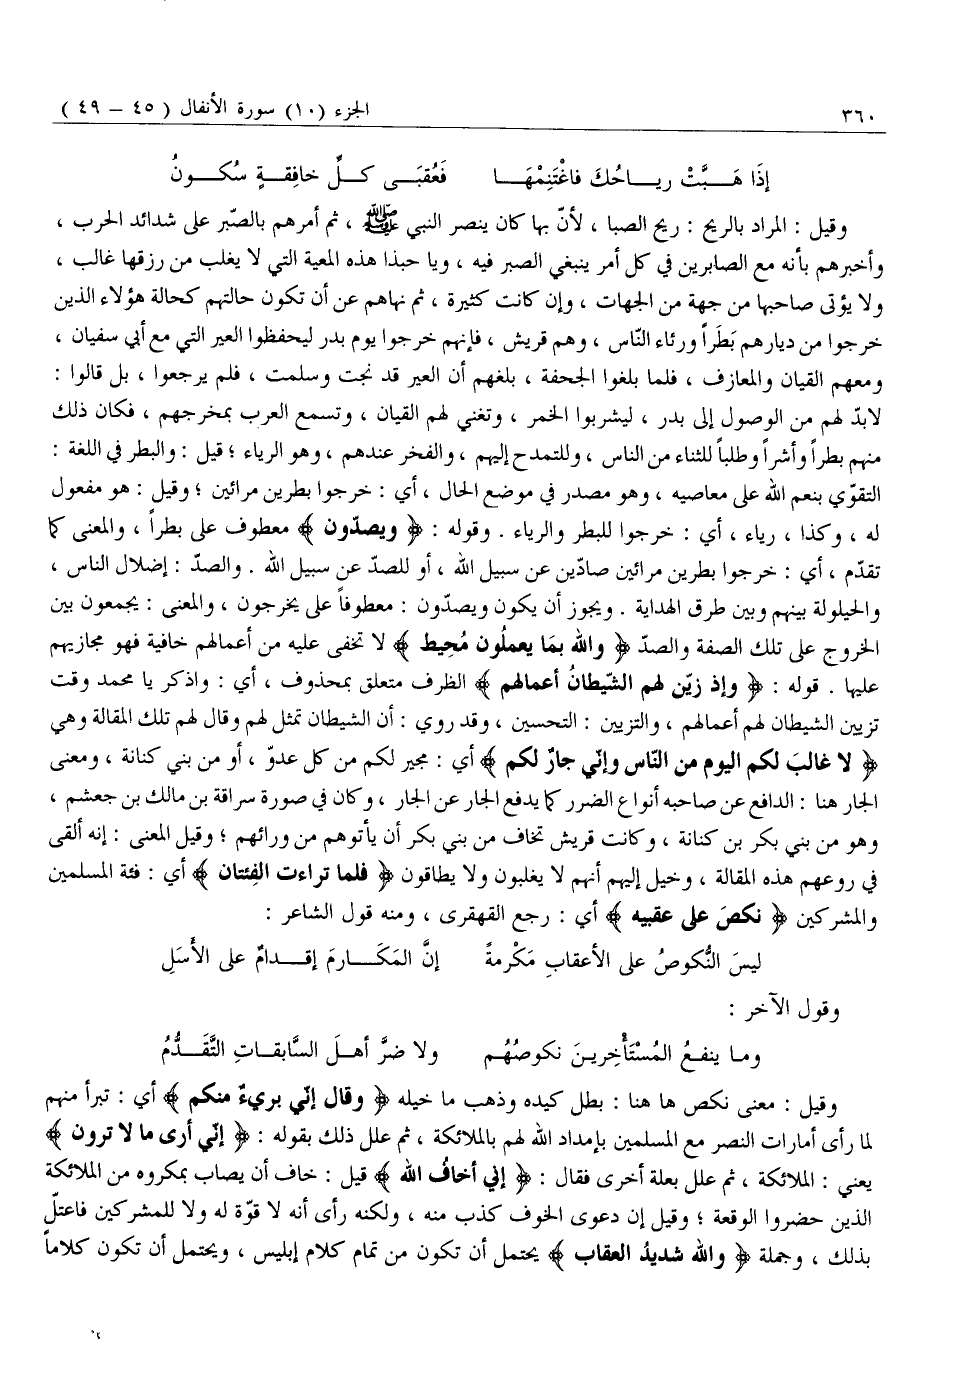 ٣٦٠ الجزء (١٠) سورة الأنفال ( ٤٥ – ٤٩ )
إذَا هَــبَّتْ ريــاحُكَ فاغْتَنِمْهَــا فَعُقبَــى كــلِّ خافِقةٍ سُكــونُ
وقيل : المراد بالريح : ريح الصبا ، لأنّ بها كان ينصر النبي ﷺ ، ثم أمرهم بالصّبر على شدائد الحرب ،
وأخبرهم بأنه مع الصابرين في كل أمر ينبغي الصبر فيه ، ويا حبذا هذه المعية التي لا يغلب من رزقها غالب ،
ولا يؤتى صاحبها من جهة من الجهات ، وإن كانت كثيرة ، ثم نهاهم عن أن تكون حالتهم كحالة هؤلاء الذين
خرجوا من ديارهم بَطَراً ورئاء النّاس ، وهم قريش ، فإنهم خرجوا يوم بدر ليحفظوا العير التي مع أبي سفيان ،
ومعهم القيان والمعازف ، فلما بلغوا الجحفة ، بلغهم أن العير قد نجت وسلمت ، فلم يرجعوا ، بل قالوا :
لابدّ لهم من الوصول إلى بدر ، ليشربوا الخمر ، وتغني لهم القيان ، وتسمع العرب بمخرجهم ، فكان ذلك
منهم بطراً وأشراً وطلباً للثناء من الناس ، وللتمدح إليهم ، والفخر عندهم ، وهو الرياء ؛ قيل : والبطر في اللغة :
التقوّي بنعم الله على معاصيه ، وهو مصدر في موضع الحال ، أي : خرجوا بطرين مرائين ؛ وقيل : هو مفعول
له ، وكذا ، رياء ، أي : خرجوا للبطر والرياء . وقوله : ﴿ ويصدّون ﴾ معطوف على بطراً ، والمعنى كما
تقدّم ، أي : خرجوا بطرين مرائين صادّين عن سبيل الله ، أو للصد عن سبيل الله . والصدّ : إضلال الناس ،
والحيلولة بينهم وبين طرق الهداية . ويجوز أن يكون ويصدّون : معطوفاً على يخرجون ، والمعنى : يجمعون بين
الخروج على تلك الصفة والصدّ ﴿ والله بمَا يعملُون مُحِيط ﴾ لا تخفى عليه من أعمالهم خافية فهو مجازيهم
عليها . قوله : ﴿ وإذ زيّن لهم الشّيطانُ أعمالهم ﴾ الظرف متعلق بمحذوف ، أي : واذكر يا محمد وقت
تزيين الشيطان لهم أعمالهم ، والتزيين : التحسين ، وقد روي : أن الشيطان تمثل لهم وقال لهم تلك المقالة وهي
﴿ لا غالبَ لكم اليوم من النّاس وإنّي جارٌ لكم ﴾ أي : مجير لكم من كل عدوّ ، أو من بني كنانة ، ومعنى
الجار هنا : الدافع عن صاحبه أنواع الضرر كما يدفع الجار عن الجار ، وكان في صورة سراقة بن مالك بن جعشم ،
وهو من بني بكر بن كنانة ، وكانت قريش تخاف من بني بكر أن يأتوهم من ورائهم ؛ وقيل المعنى : إنه ألقى
في روعهم هذه المقالة ، وخيل إليهم أنهم لا يغلبون ولا يطاقون ﴿ فلما تراءت الفِئتان ﴾ أي : فئة المسلمين
والمشركين ﴿ نكصَ على عقبيه ﴾ أي : رجع القهقرى ، ومنه قول الشاعر :
ليسَ النُّكوصُ على الأعقابِ مَكْرمةً إنَّ المَكَــارمَ إقــدامٌ على الأَسَلِ
وقول الآخر :
وما ينفعُ المُسْتَأْخِرينَ نكوصُهُم ولا ضرَّ أهلَ السَّابقاتِ التَّقَدُّمُ
وقيل : معنى نكص ها هنا : بطل كيده وذهب ما خيله ﴿ وقال إنّي بريءٌ منكم ﴾ أي : تبرأ منهم
لما رأى أمارات النصر مع المسلمين بإمداد الله لهم بالملائكة ، ثم علل ذلك بقوله : ﴿ إنّي أرى ما لا ترون ﴾
يعني : الملائكة ، ثم علل بعلة أخرى فقال : ﴿ إني أخافُ الله ﴾ قيل : خاف أن يصاب بمكروه من الملائكة
الذين حضروا الوقعة ؛ وقيل إن دعوى الخوف كذب منه ، ولكنه رأى أنه لا قوّة له ولا للمشركين فاعتلّ
بذلك ، وجملة ﴿ والله شديدُ العقاب ﴾ يحتمل أن تكون من تمام كلام إبليس ، ويحتمل أن تكون كلاماً